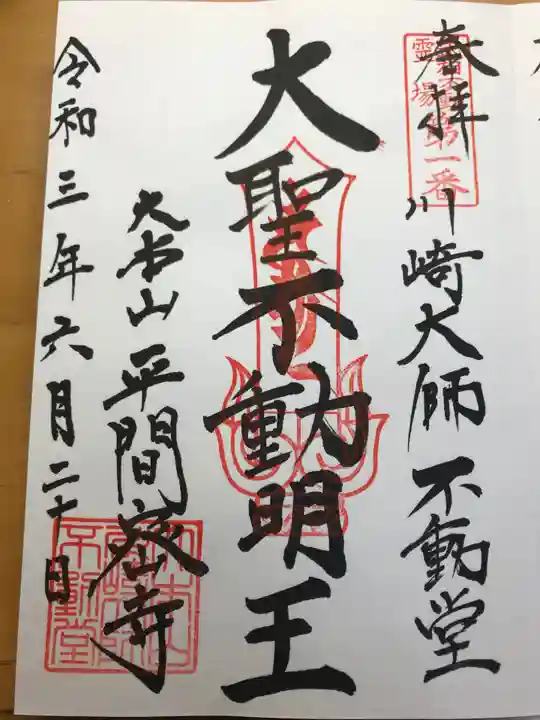 奉拝
霊場
第一番
川崎大師 不動堂
大聖不動明王
大本山 平間寺
令和三年六月二十日
不動堂